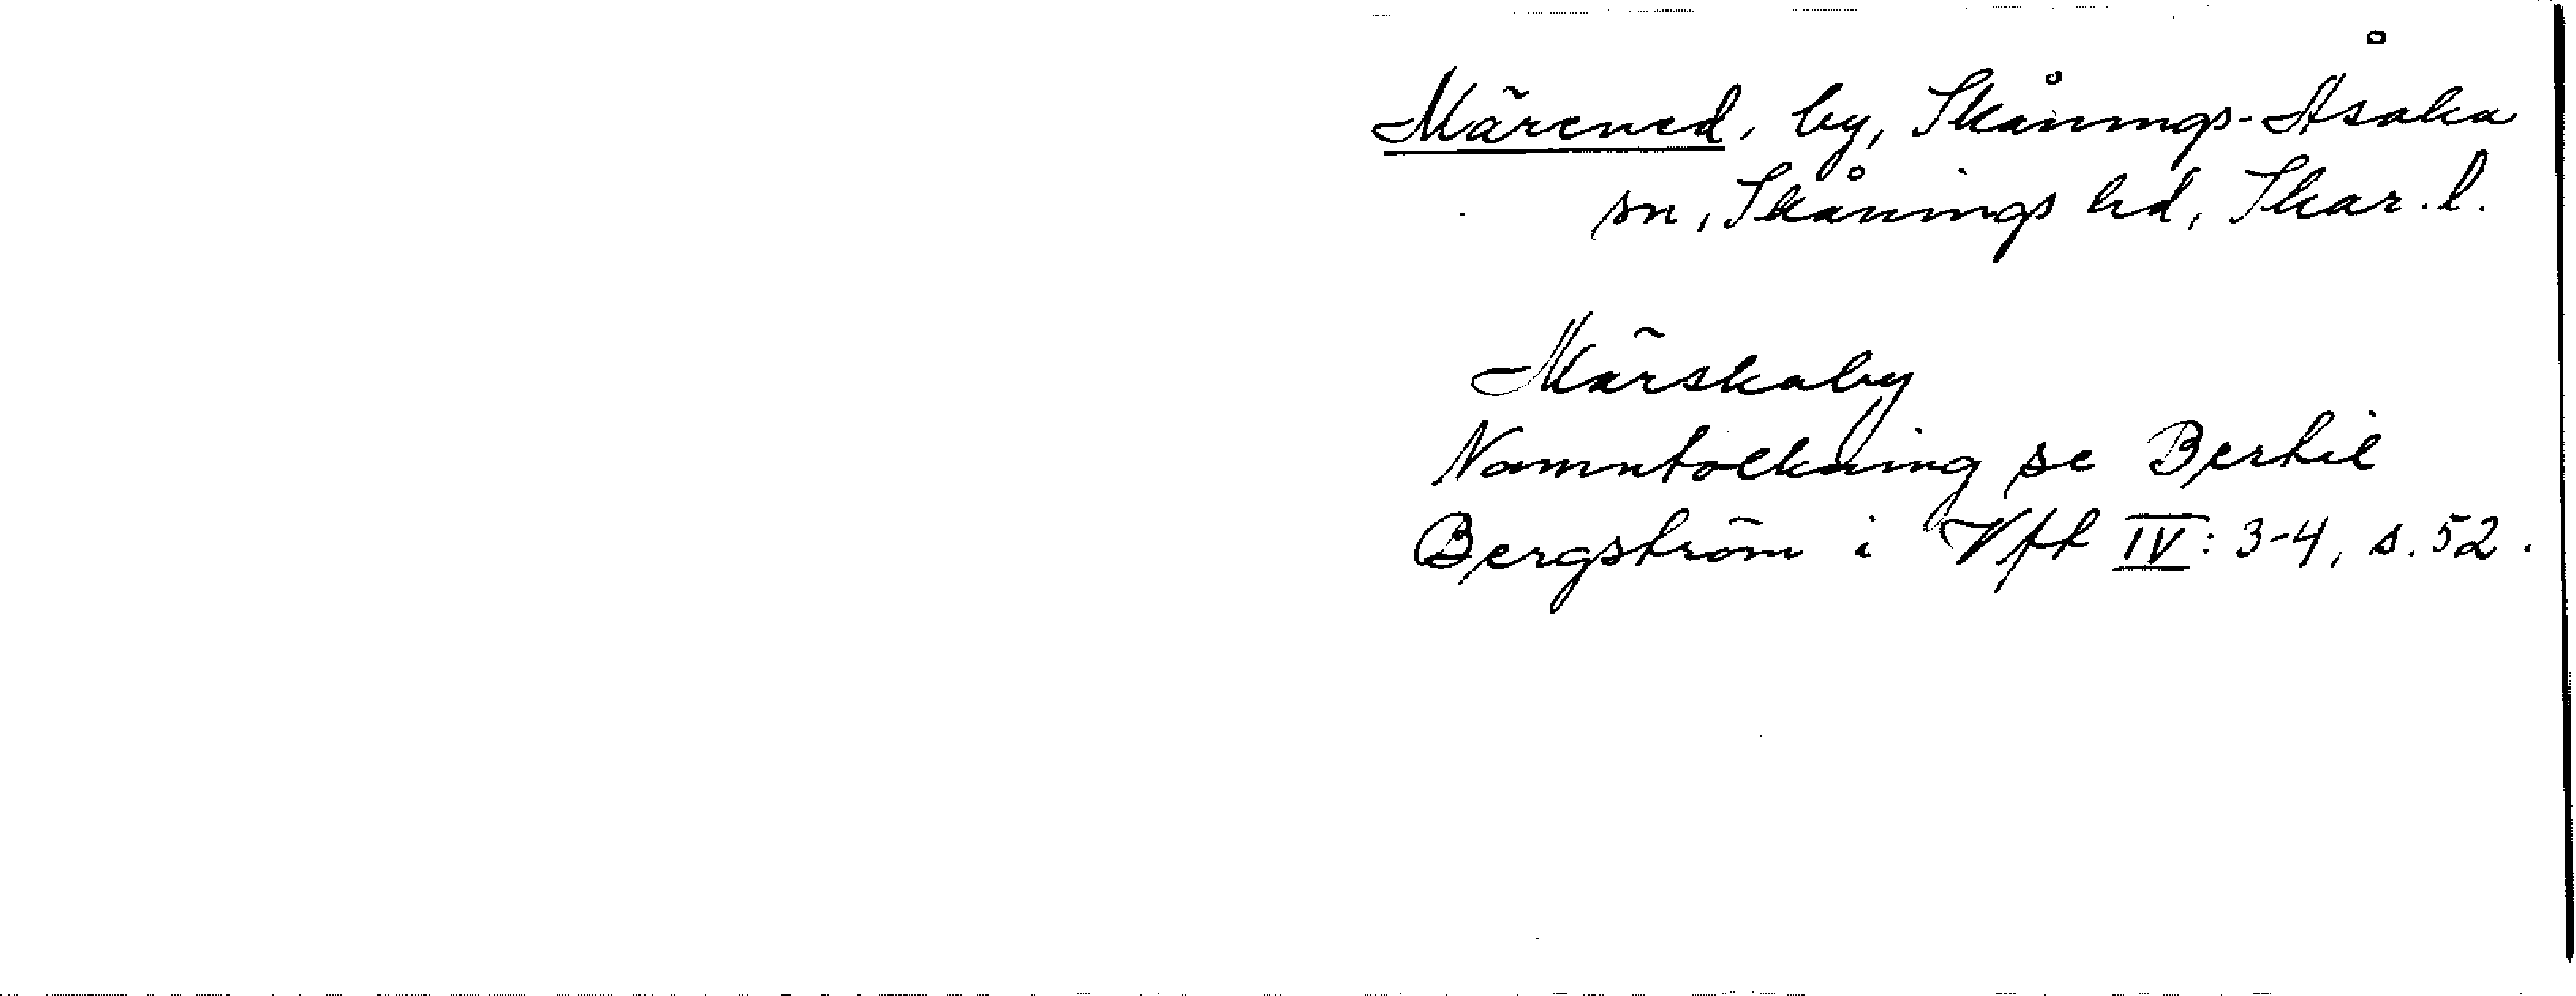 Märened, by, Skånings-Åsaka
sn, Skånings hd, Skar. l.
Märskaby
Namntolkning se Bertil
Bergström i Vft IV: 3-4, s. 52.